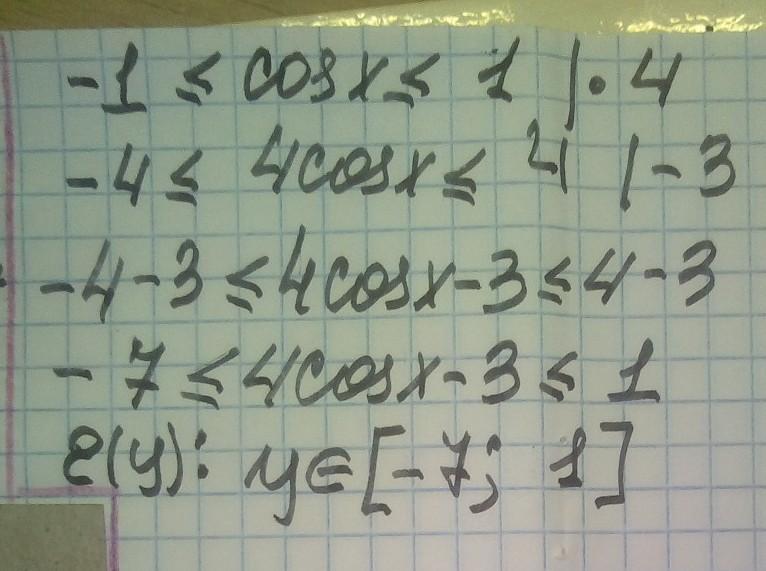 -1 ≤ cosx ≤ 1 |· 4
-4 ≤ 4cosx ≤ 4 |- 3
-4-3 ≤ 4cosx-3 ≤ 4-3
-7 ≤ 4cosx-3 ≤ 1
E(y): y∈[-7; 1]